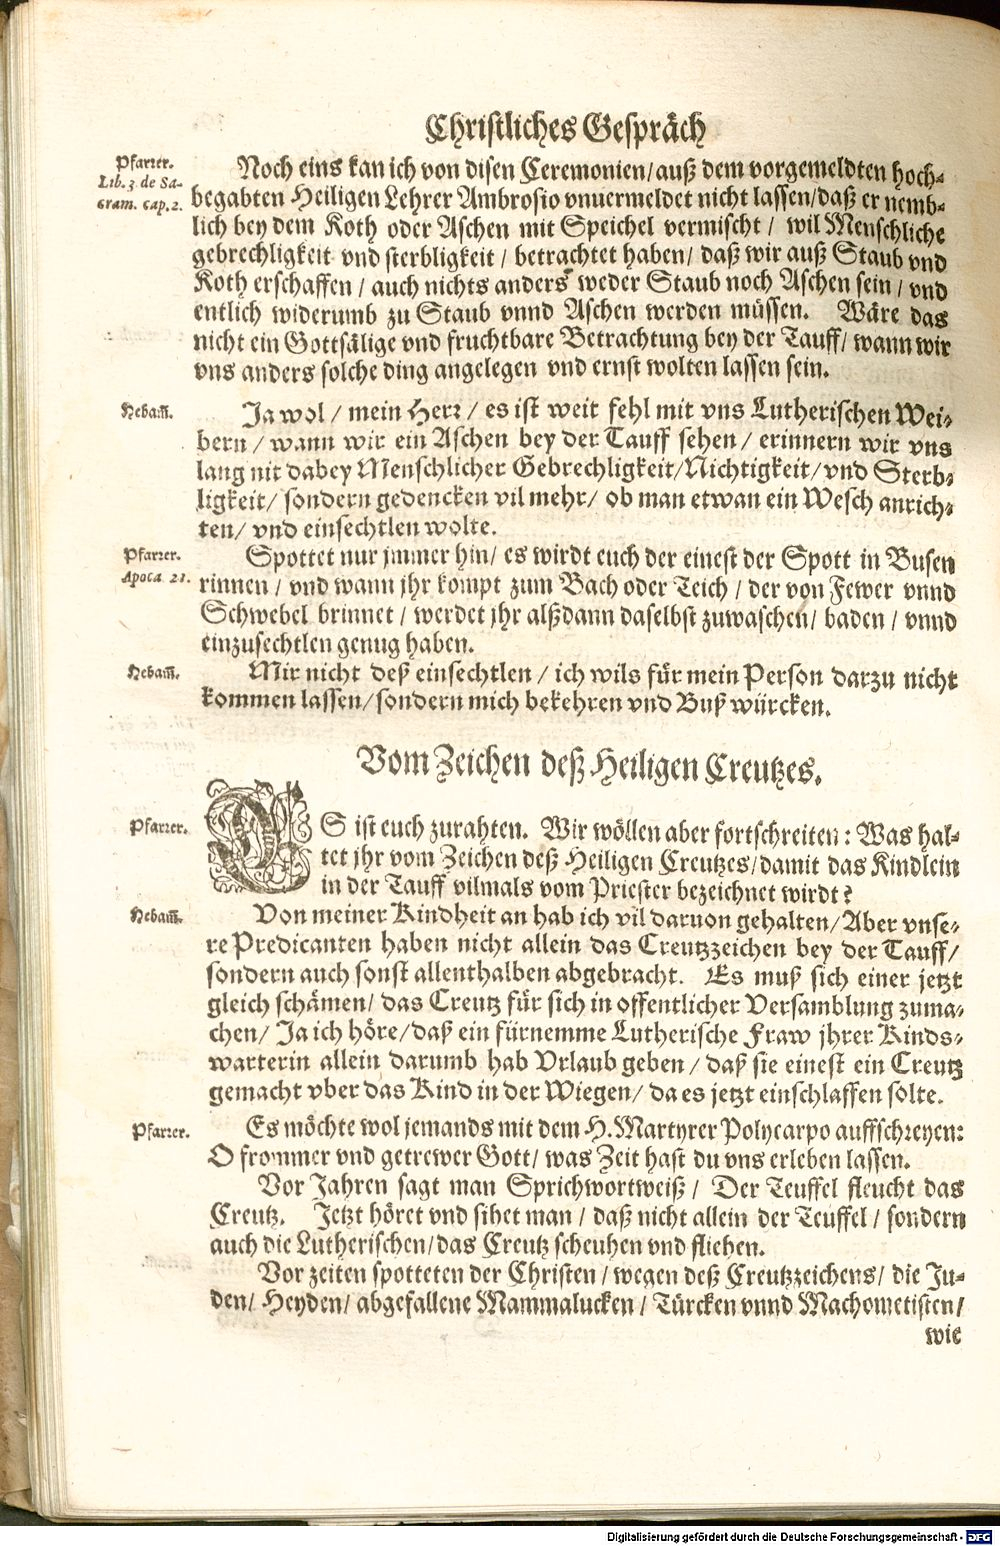 Christliches Gespräch
Pfarrer.
Lib. 3. de Sa-
cram. cap. 2.
Noch eins kan ich von disen Ceremonien/ auß dem vorgemeldten hoch-
begabten Heiligen Lehrer Ambrosio vnuermeldet nicht lassen/ daß er nemb-
lich bey dem Koth oder Aschen mit Speichel vermischt/ wil Menschliche
gebrechligkeit vnd sterbligkeit/ betrachtet haben/ daß wir auß Staub vnd
Koth erschaffen/ auch nichts anders weder Staub noch Aschen sein/ vnd
entlich widerumb zu Staub vnnd Aschen werden müssen. Wäre das
nicht ein Gottsälige vnd fruchtbare Betrachtung bey der Tauff/ wann wir
vns anders solche ding angelegen vnd ernst wolten lassen sein.
Hebam̃.
Ja wol/ mein Herr/ es ist weit fehl mit vns Lutherischen Wei-
bern/ wann wir ein Aschen bey der Tauff sehen/ erinnern wir vns
lang nit dabey Menschlicher Gebrechligkeit/ Nichtigkeit/ vnd Sterb-
ligkeit/ sondern gedencken vil mehr/ ob man etwan ein Wesch anrich-
ten/ vnd einsechtlen wolte.
Pfarrer.
Apoca. 21.
Spottet nur jmmer hin/ es wirdt euch der einest der Spott in Busen
rinnen/ vnd wann jhr kompt zum Bach oder Teich/ der von Fewer vnnd
Schwebel brinnet/ werdet jhr alßdann daselbst zuwaschen/ baden/ vnnd
einzusechtlen genug haben.
Hebam̃.
Mir nicht deß einsechtlen/ ich wils für mein Person darzu nicht
kommen lassen/ sondern mich bekehren vnd Buß würcken.
Vom Zeichen deß Heiligen Creutzes.
Pfarrer.
DS ist euch zurahten. Wir wöllen aber fortschreiten: Was hal-
tet jhr vom Zeichen deß Heiligen Creutzes/ damit das Kindlein
in der Tauff vilmals vom Priester bezeichnet wirdt?
Hebam̃.
Von meiner Kindheit an hab ich vil daruon gehalten/ Aber vnse-
re Predicanten haben nicht allein das Creutzzeichen bey der Tauff/
sondern auch sonst allenthalben abgebracht. Es muß sich einer jetzt
gleich schämen/ das Creutz für sich in offentlicher Versamblung zuma-
chen/ Ja ich höre/ daß ein fürnemme Lutherische Fraw jhrer Kinds-
warterin allein darumb hab Vrlaub geben/ daß sie einest ein Creutz
gemacht vber das Kind in der Wiegen/ da es jetzt einschlaffen solte.
Pfarrer.
Es möchte wol jemands mit dem H. Martyrer Polycarpo auffschreyen:
O frommer vnd getrewer Gott/ was Zeit hast du vns erleben lassen.
Vor Jahren sagt man Sprichwortweiß/ Der Teuffel fleucht das
Creutz. Jetzt höret vnd sihet man/ daß nicht allein der Teuffel/ sondern
auch die Lutherischen/ das Creutz scheuhen vnd fliehen.
Vor zeiten spotteten der Christen/ wegen deß Creutzzeichens/ die Ju-
den/ Heyden/ abgefallene Mammalucken/ Türcken vnnd Machometisten/
wie
Digitalisierung gefördert durch die Deutsche Forschungsgemeinschaft - DFG